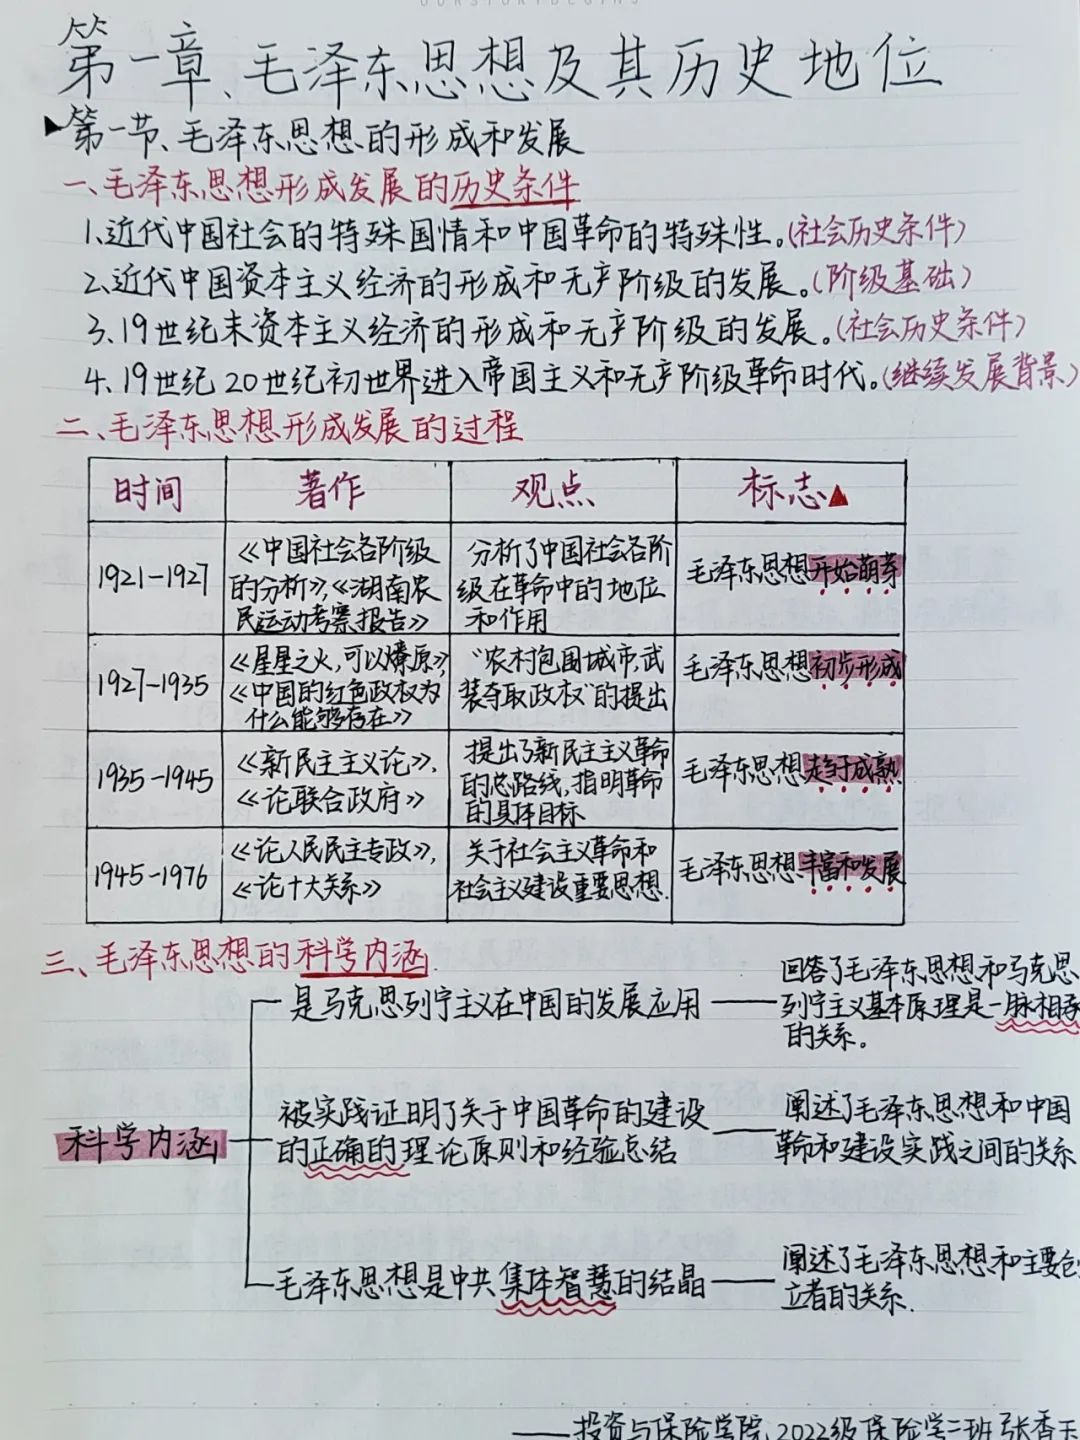 OURSTORYBEGINS
第一章、毛泽东思想及其历史地位
第一节、毛泽东思想的形成和发展
一、毛泽东思想形成发展的历史条件
1、近代中国社会的特殊国情和中国革命的特殊性。(社会历史条件)
2、近代中国资本主义经济的形成和无产阶级的发展。(阶级基础)
3、19世纪末资本主义经济的形成和无产阶级的发展。(社会历史条件)
4、19世纪20世纪初世界进入帝国主义和无产阶级革命时代。(继续发展背景)
二、毛泽东思想形成发展的过程
时间 著作 观点 标志
1921-1927
《中国社会各阶级
的分析》,《湖南农
民运动考察报告》
分析了中国社会各阶
级在革命中的地位
和作用
毛泽东思想开始萌芽
1927-1935
《星星之火,可以燎原》
《中国的红色政权为
什么能够存在》
"农村包围城市,武
装夺取政权"的提出
毛泽东思想初步形成
1935-1945
《新民主主义论》,
《论联合政府》
提出了新民主主义革命
的总路线,指明革命
的具体目标
毛泽东思想趋于成熟
1945-1976
《论人民民主专政》,
《论十大关系》
关于社会主义革命和
社会主义建设重要思想.
毛泽东思想丰富和发展
三、毛泽东思想的科学内涵.
科学内涵
是马克思列宁主义在中国的发展应用
回答了毛泽东思想和马克思
列宁主义基本原理是一脉相承
的关系。
被实践证明了关于中国革命的建设
的正确的理论原则和经验总结
阐述了毛泽东思想和中国
革命和建设实践之间的关系
毛泽东思想是中共集体智慧的结晶
阐述了毛泽东思想和主要创
立者的关系.
——投资与保险学院 2022级保险学二班 张香玉